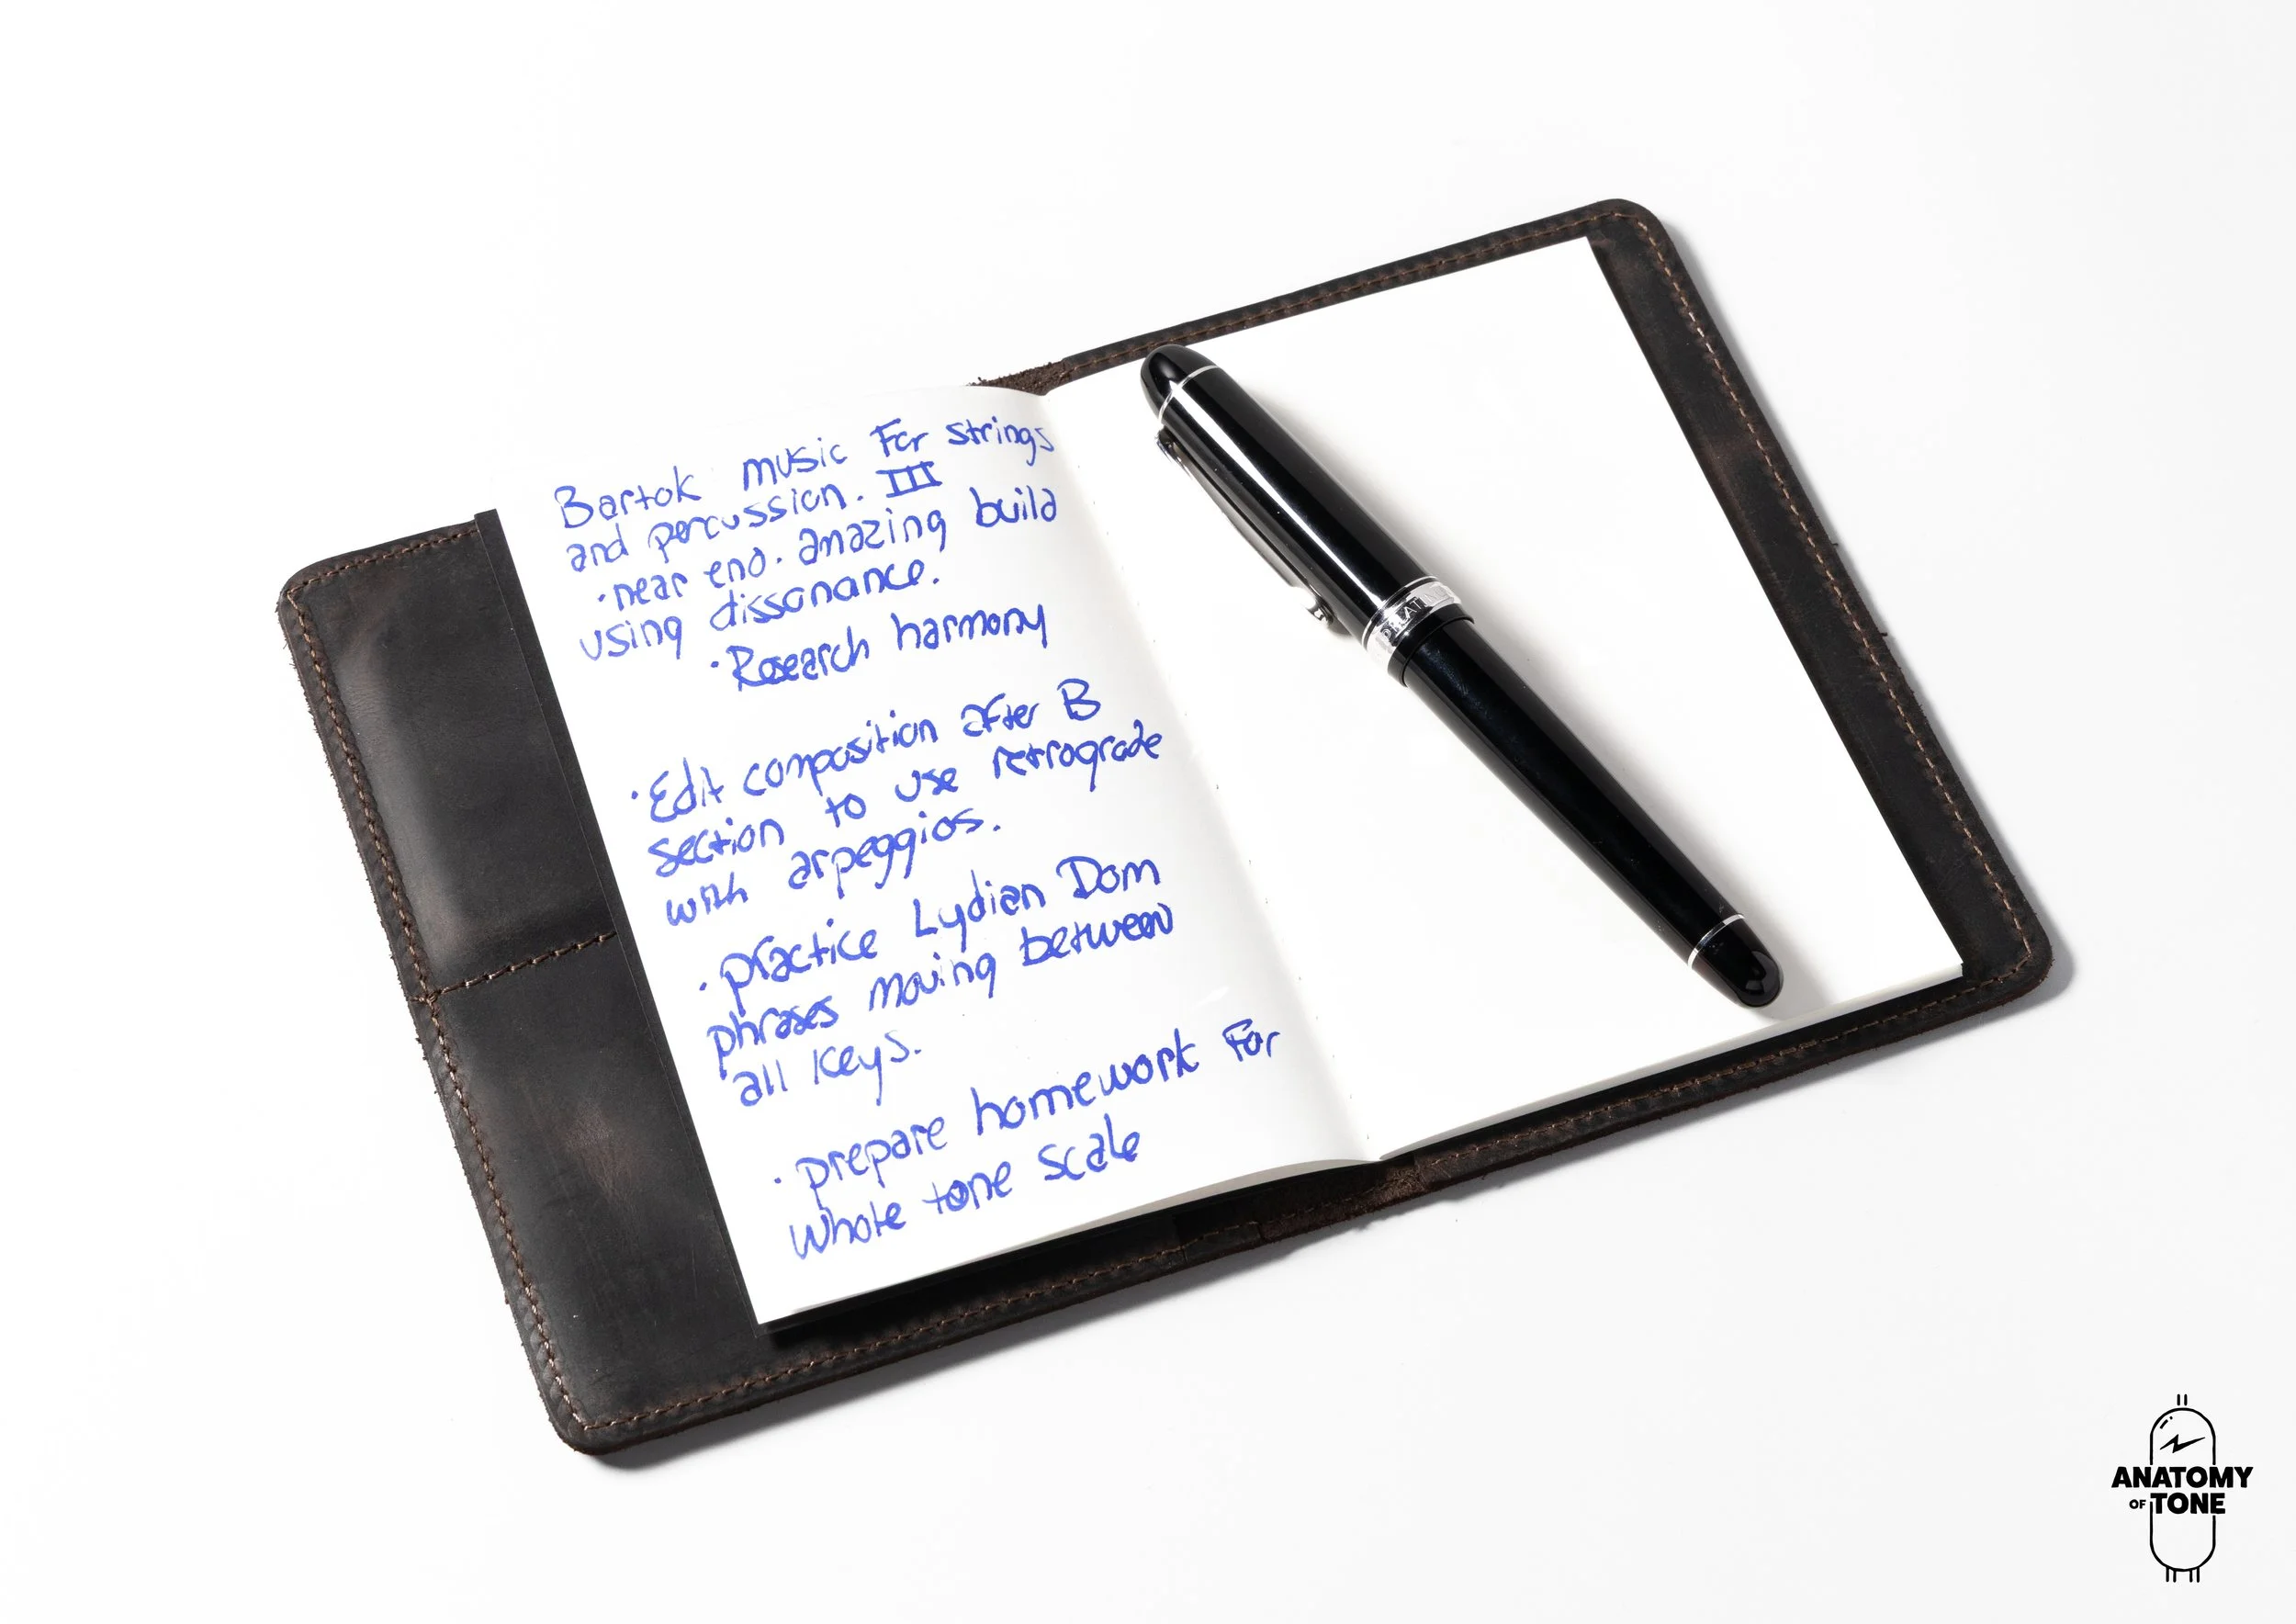 Bartok music For strings
and percussion. III
·near end. amazing build
using dissonance.
·Research harmony
·Edit composition after B
section to use retrograde
with arpeggios.
·practice Lydian Dom
phrases moving between
all keys.
·prepare homework For
whole tone scale
ANATOMY
OF TONE